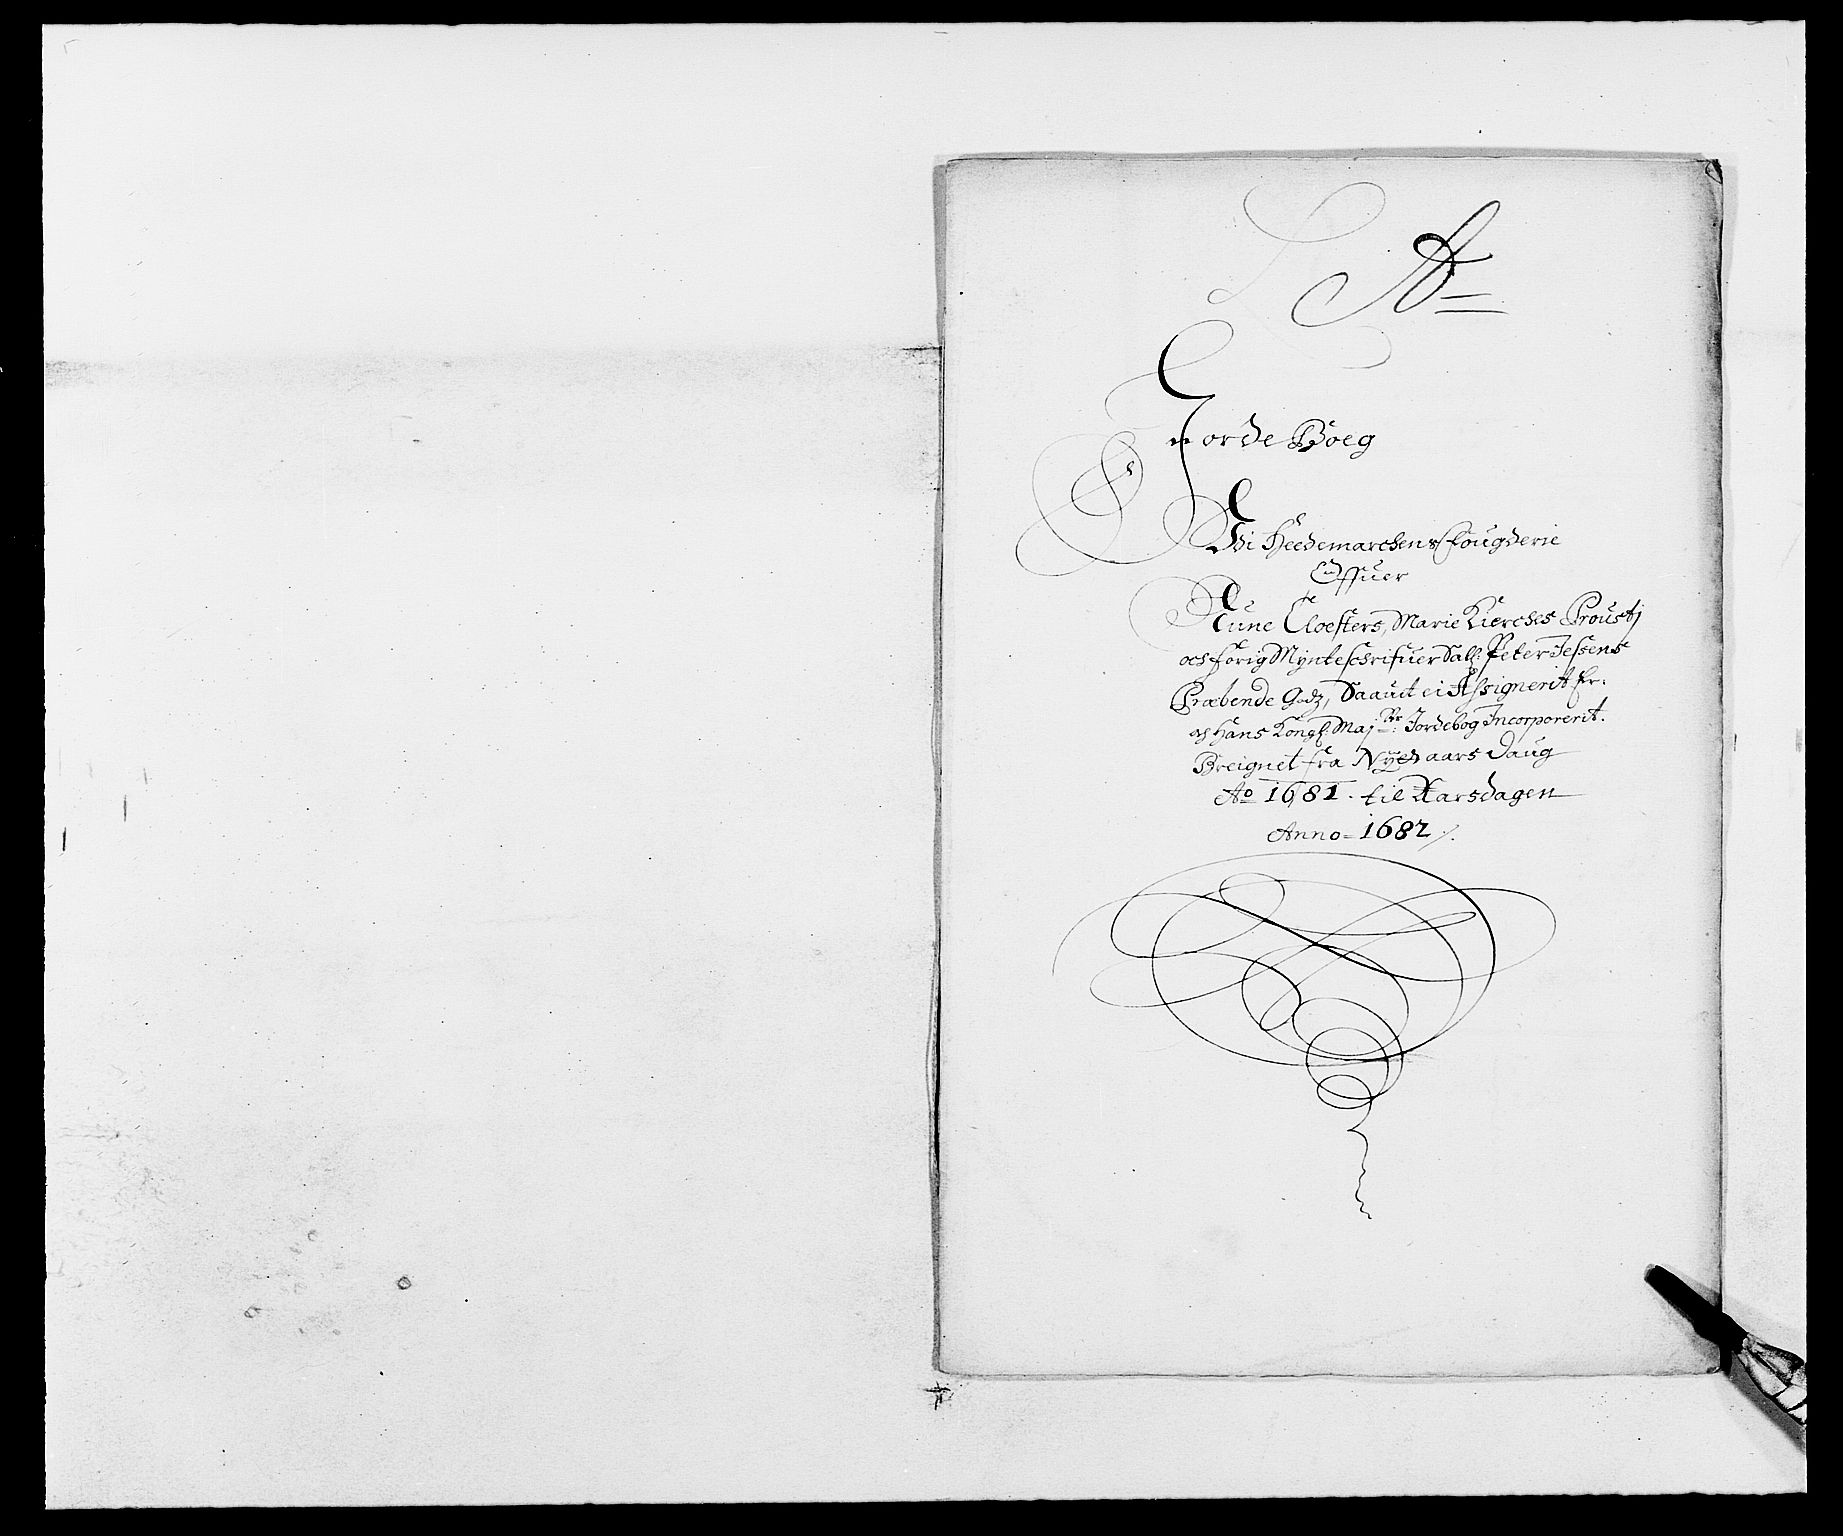 A
Jorde Boeg
Udi Heedemarchens fougderie
Offuer
Nune Cloesters, Marie KierchesProustj
och forig Mynteschrifuer Sall: Peter Jessens
Præbende Godz, Saauit ei Assignerit Er:
och Hans Kongl: Maj: Jordebog Incorporerit.
Breignet fra Nyed aars Daug
Ao 1681. til Aarsdagen
Anno = 1682 /.